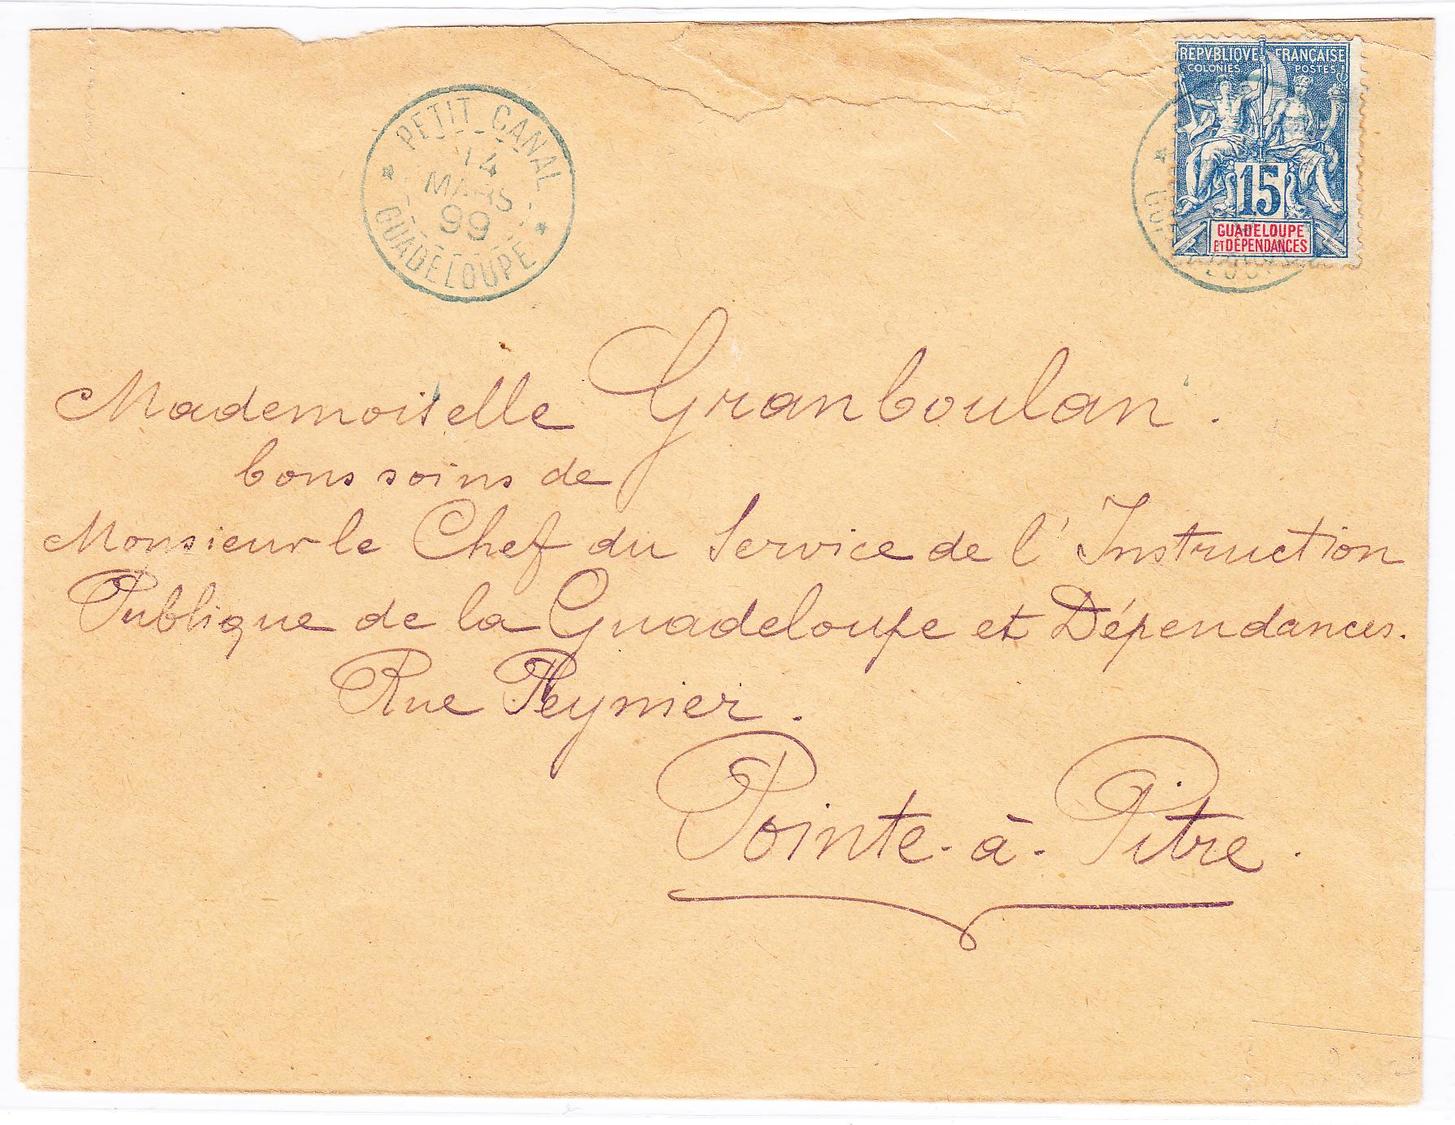 PETIT CANAL
14
MARS
99
GUADELOUPE
REPVBLIQVE FRANÇAISE
COLONIES POSTES
15
GUADELOUPE
ET DÉPENDANCES
Mademoiselle Granboulan.
bons soins de
Monsieur le Chef du Service de l'Instruction
Publique de la Guadeloupe et Dépendances.
Rue Peynier.
Pointe-à-Pitre.